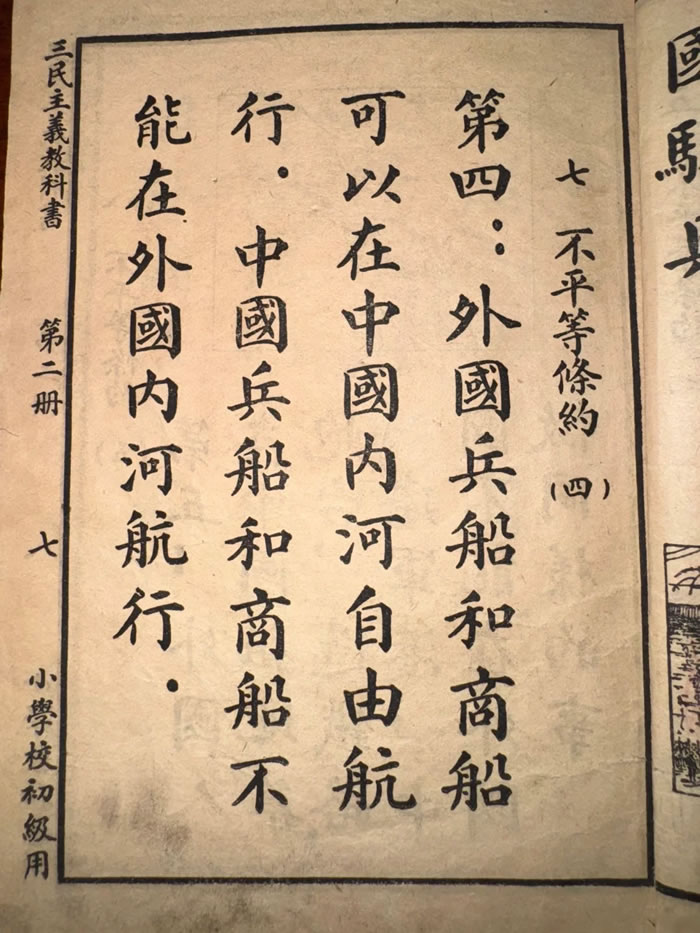 國
七 不平等條約 (四)
第四：外國兵船和商船
可以在中國內河自由航
行．中國兵船和商船不
能在外國內河航行．
三民主義教科書 第二册 七 小學校初級用